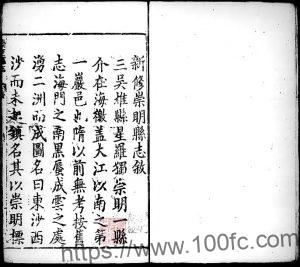 新修崇明縣志敘
三吳雄縣星羅獨崇明一縣
介在海徼蓋大江以南之第
一嚴邑也隋以前無考按舊
志海門之南黑蜃成雲之處
湧二洲而成圖名曰東沙西
沙而未建鎮名其以崇明標
https://www.100fc.com